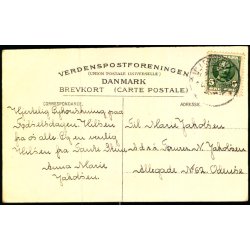 VERDENSPOSTFORENINGEN
(UNION POSTALE UNIVERSELLE)
DANMARK
BREVKORT (CARTE POSTALE)
KORRESPONDANCE:
ADRESSE:
Hjertelig Lykønskning paa
Fødselsdagen Hilsen
fra os alle og en venlig
Hilsen fra Tante Stine
Anna Marie
Jakobsen.
Til Marie Jakobsen
N. Jakobsen
Allegade No 62. Odense
5